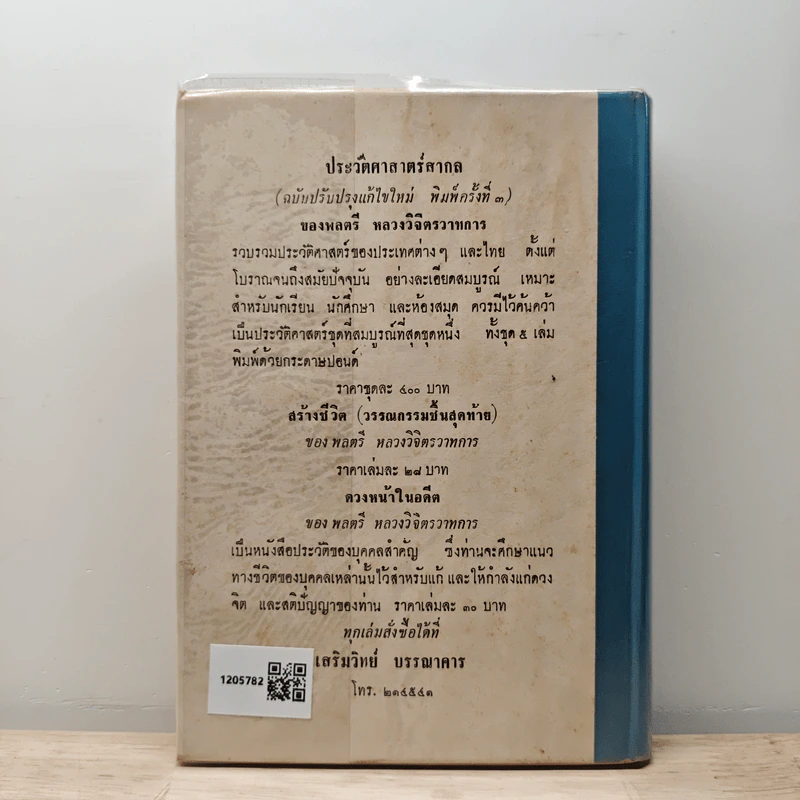 ประวัติศาสาตร์สากล
(ฉบับปรับปรุงแก้ไขใหม่ พิมพ์ครั้งที่ ๓)
ของพลตรี หลวงวิจิตรวาทการ
รวบรวมประวัติศาสตร์ของประเทศต่าง ๆ และไทย ตั้งแต่
โบราณจนถึงสมัยปัจจุบัน อย่างละเอียดสมบูรณ์ เหมาะ
สำหรับนักเรียน นักศึกษา และห้องสมุด ควรมีไว้ค้นคว้า
เป็นประวัติศาสตร์ชุดที่สมบูรณ์ที่สุดชุดหนึ่ง ทั้งชุด ๕ เล่ม
พิมพ์ด้วยกระดาษปอนด์
ราคาชุดละ ๔๐๐ บาท
สร้างชีวิต (วรรณกรรมชิ้นสุดท้าย)
ของ พลตรี หลวงวิจิตรวาทการ
ราคาเล่มละ ๒๘ บาท
ดวงหน้าในอดีต
ของ พลตรี หลวงวิจิตรวาทการ
เป็นหนังสือประวัติของบุคคลสำคัญ ซึ่งท่านจะศึกษาแนว
ทางชีวิตของบุคคลเหล่านั้นไว้สำหรับแก้ และให้กำลังแก่ดวง
จิต และสติปัญญาของท่าน ราคาเล่มละ ๓๐ บาท
ทุกเล่มสั่งซื้อได้ที่
เสริมวิทย์ บรรณาคาร
โทร. ๒๑๔๕๔๑
1205782